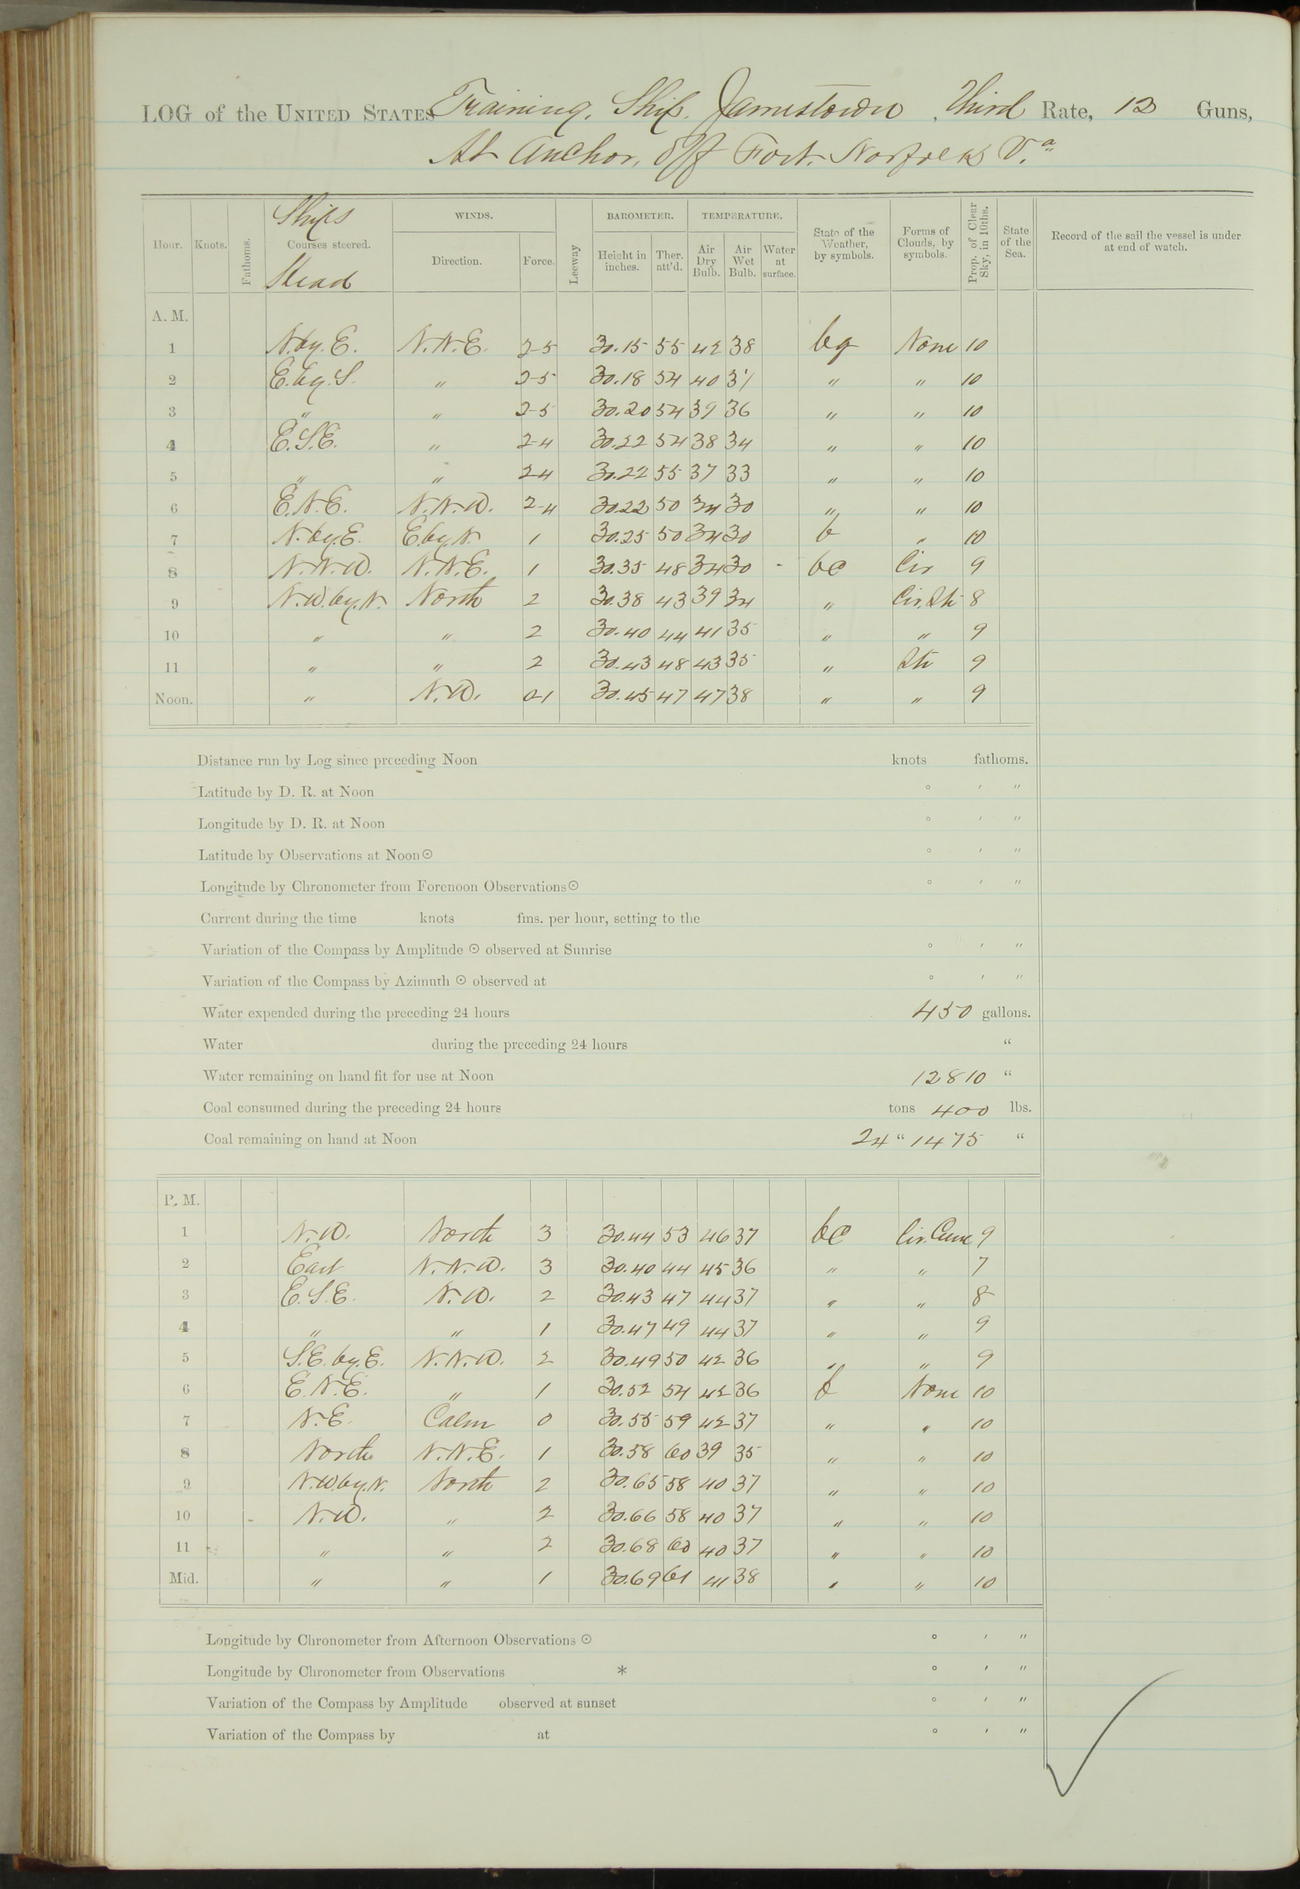 LOG of the UNITED STATES Training Ship Jamestown, Third Rate, 12 Guns,
At Anchor, off Fort Norfolk Va
Hour. Knots. Fathoms. Ships Courses steered. Head WINDS. Direction. Force. Leeway BAROMETER. Height in inches. Ther. att'd. TEMPERATURE. Air Dry Bulb. Air Wet Bulb. Water at surface. State of the Weather, by symbols. Forms of Clouds, by symbols. Prop. of Clear Sky, in 10ths. State of the Sea. Record of the sail the vessel is under at end of watch.
A. M.
1 N.by.E. N.N.E. 2-5 30.15 55 42 38 bq None 10
2 E.by.S. " 2-5 30.18 54 40 37 " " 10
3 " " 2-5 30.20 54 39 36 " " 10
4 E.S.E. " 2-4 30.22 54 38 34 " " 10
5 " " 2-4 30.22 55 37 33 " " 10
6 E.N.E. N.N.W. 2-4 30.22 50 34 30 " " 10
7 N.by.E. E.by.N 1 30.25 50 34 30 b " 10
8 N.N.W. N.N.E. 1 30.35 48 34 30 bc Cir 9
9 N.W.by.N. North 2 30.38 43 39 34 " Cir.Str 8
10 " " 2 30.40 44 41 35 " " 9
11 " " 2 30.43 48 43 35 " Str 9
Noon. " N.W. 0-1 30.45 47 47 38 " " 9
Distance run by Log since preceding Noon knots fathoms.
Latitude by D. R. at Noon ° ′ ″
Longitude by D. R. at Noon ° ′ ″
Latitude by Observations at Noon ☉ ° ′ ″
Longitude by Chronometer from Forenoon Observations ☉ ° ′ ″
Current during the time knots fms. per hour, setting to the
Variation of the Compass by Amplitude ☉ observed at Sunrise ° ′ ″
Variation of the Compass by Azimuth ☉ observed at ° ′ ″
Water expended during the preceding 24 hours 450 gallons.
Water during the preceding 24 hours "
Water remaining on hand fit for use at Noon 12810 "
Coal consumed during the preceding 24 hours tons 400 lbs.
Coal remaining on hand at Noon 24 " 1475 "
P. M.
1 N.W. North 3 30.44 53 46 37 bc Cir.Cum 9
2 East N.N.W. 3 30.40 44 45 36 " " 7
3 E.S.E. N.W. 2 30.43 47 44 37 " " 8
4 " " 1 30.47 49 44 37 " " 9
5 S.E.by.E. N.N.W. 2 30.49 50 42 36 " " 9
6 E.N.E. " 1 30.52 54 42 36 b None 10
7 N.E. Calm 0 30.55 59 42 37 " " 10
8 North N.N.E. 1 30.58 60 39 35 " " 10
9 N.W.by.N. North 2 30.65 58 40 37 " " 10
10 N.W. " 2 30.66 58 40 37 " " 10
11 " " 2 30.68 60 40 37 " " 10
Mid. " " 1 30.69 61 41 38 " " 10
Longitude by Chronometer from Afternoon Observations ☉ ° ′ ″
Longitude by Chronometer from Observations * ° ′ ″
Variation of the Compass by Amplitude observed at sunset ° ′ ″
Variation of the Compass by at ° ′ ″